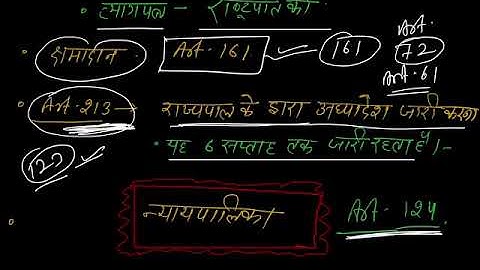 • त्यागपत्र - राष्ट्रपति को
क्षमादान Art. 161 161 Art. 72 Art. 61
• Art. 213 → राज्यपाल के द्वारा अध्यादेश जारी करना
• यह 6 सप्ताह तक जारी रहता है।-
123
न्यायपालिका Art - 124